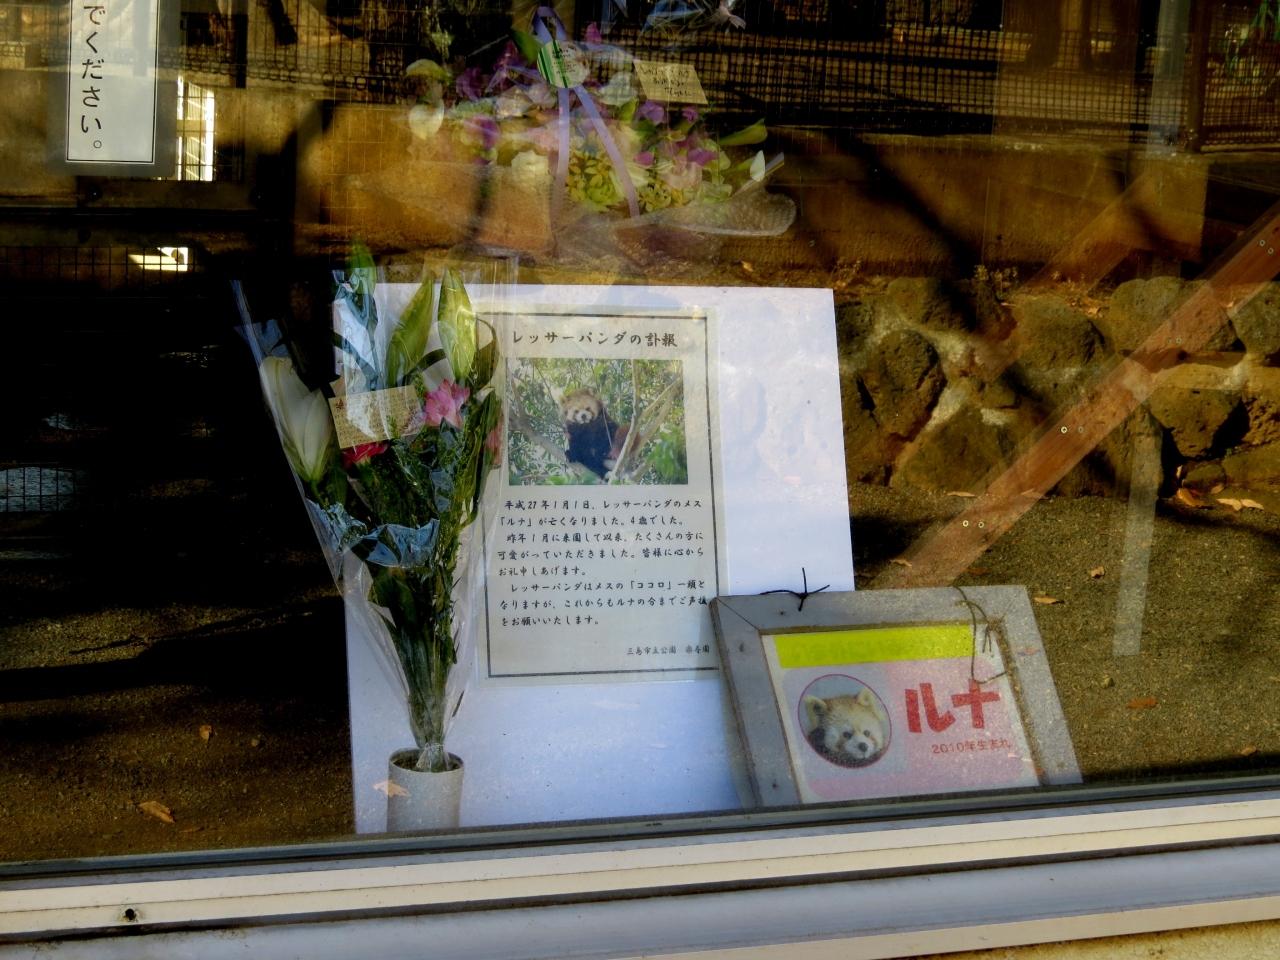 でください。
レッサーパンダの訃報
平成27年1月1日、レッサーパンダのメス
「ルナ」が亡くなりました。4歳でした。
昨年1月に来園して以来、たくさんの方に
可愛がっていただきました。皆様に心から
お礼申しあげます。
レッサーパンダはメスの「ココロ」一頭と
なりますが、これからもルナの分までご声援
をお願いいたします。
三島市立公園 楽寿園
ルナ
2010年生まれ